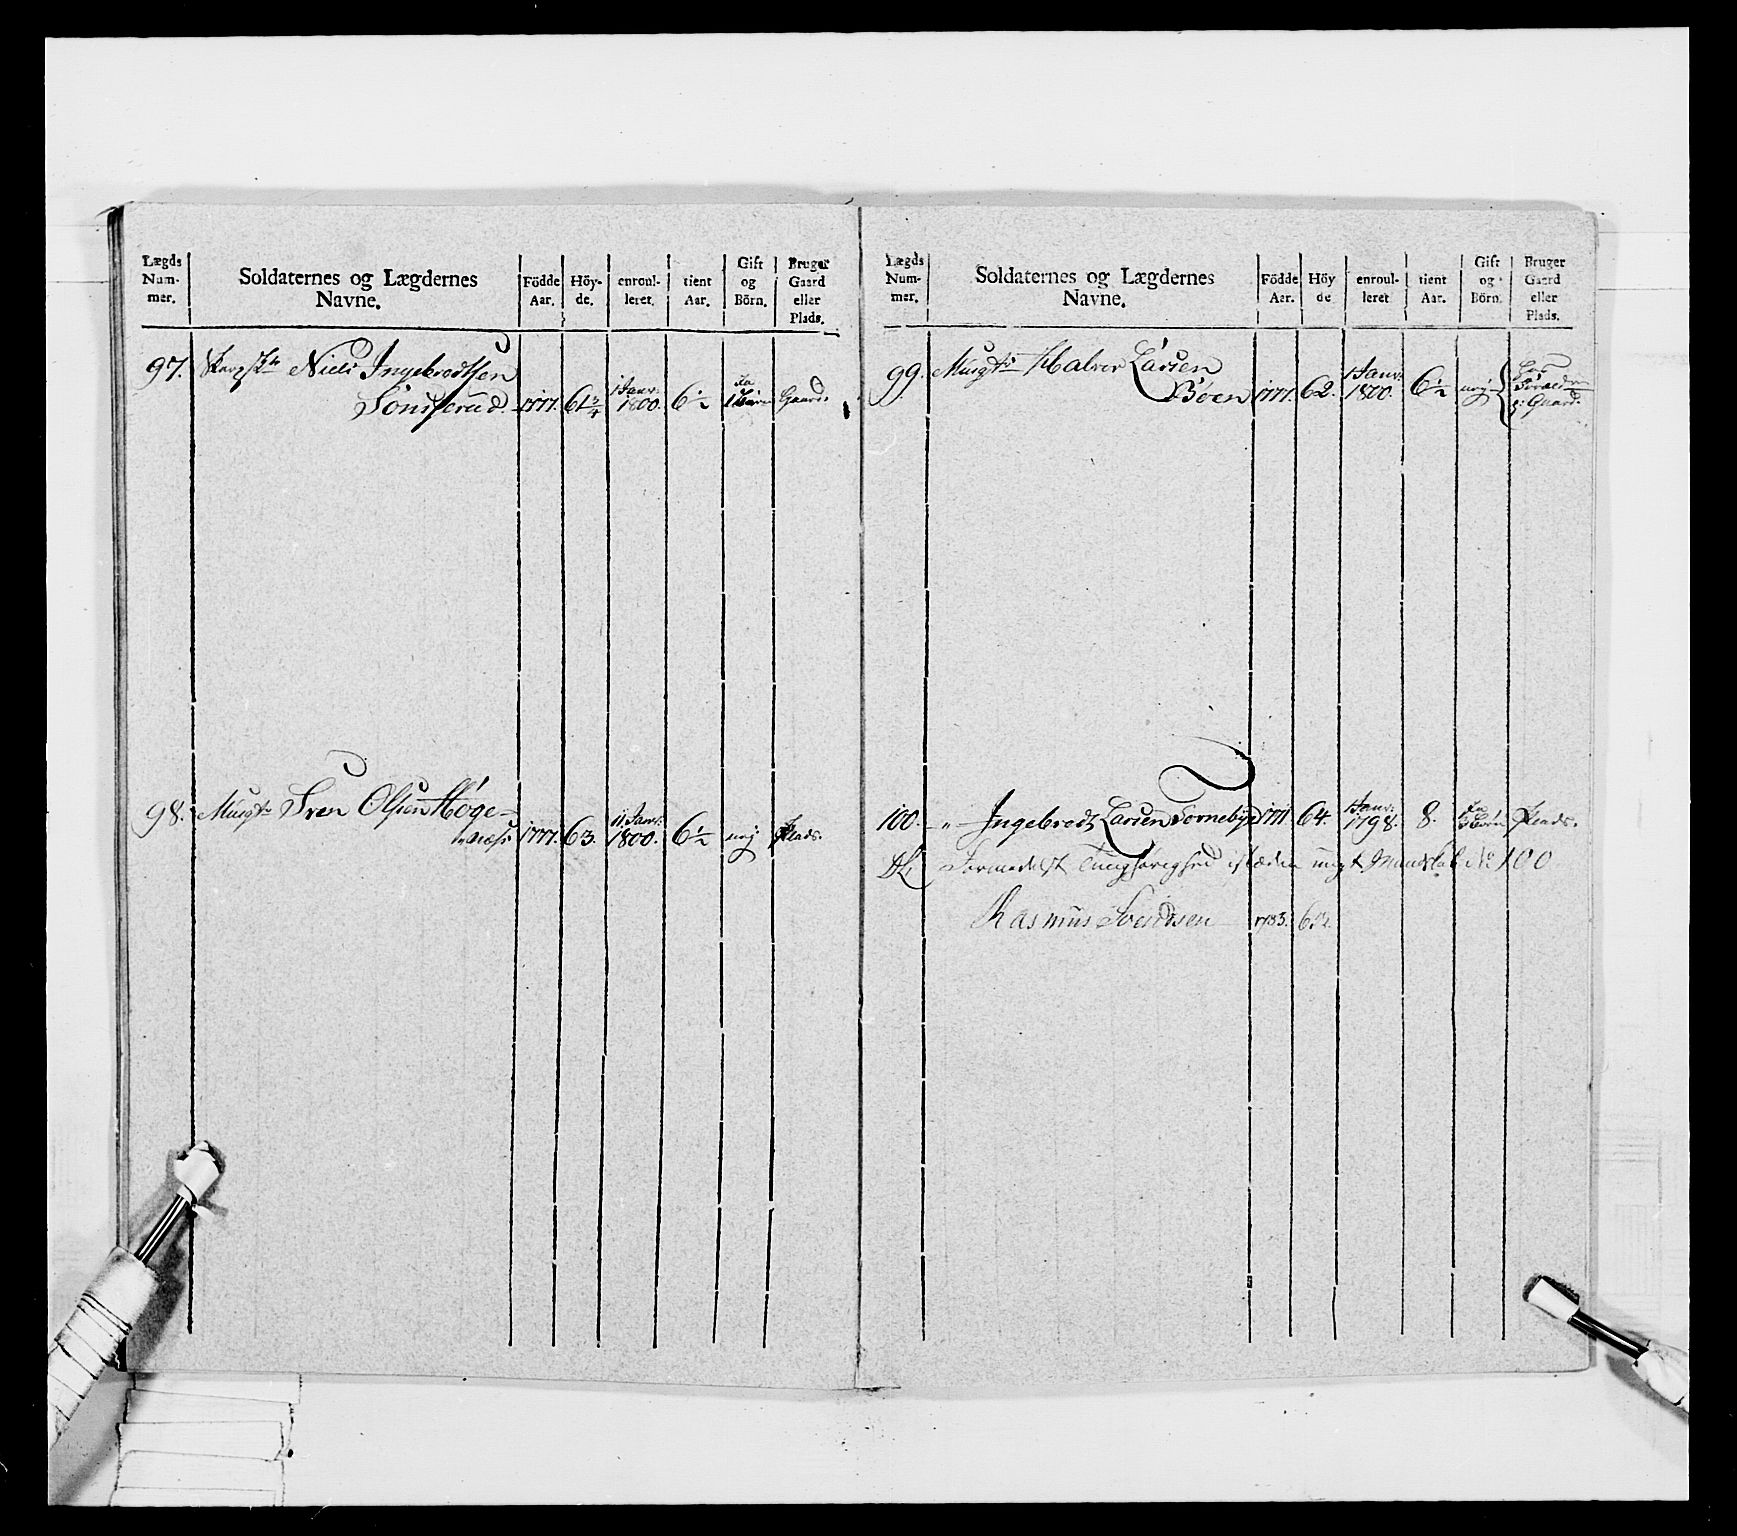 Lægds Num-mer.
Soldaternes og Lægdernes Navne.
Födde Aar.
Höy-de.
enroul-leret.
tient Aar.
Gift og Börn.
Bruger Gaard eller Plads.
97. Niels Ingebrodtsen
Sönsterud 1777. 61 3/4 1 Janv: 1800. 6 1/2 Ja 1 Gaard.
98. Musqt: Sven Olsen Höge-
1777. 63. 1 Janv: 1800. 6 1/2 nej Plads.
Lægds Num-mer.
Soldaternes og Lægdernes Navne.
Födde Aar.
Höy de
enroul-leret
tient Aar.
Gift og Börn.
Bruger Gaard eller Plads.
99. Musqt: Halvor Larsen
Böen 1777. 62. 1 Janv: 1800. 6 1/2 nej Gaard.
100. — " — Ingebredt Larsen Tornebye 1771. 64. 1 Janv: 1798. 8. Ja Plads.
Formedelst Mandskab No 100
Rasmus Svendsen 1783.